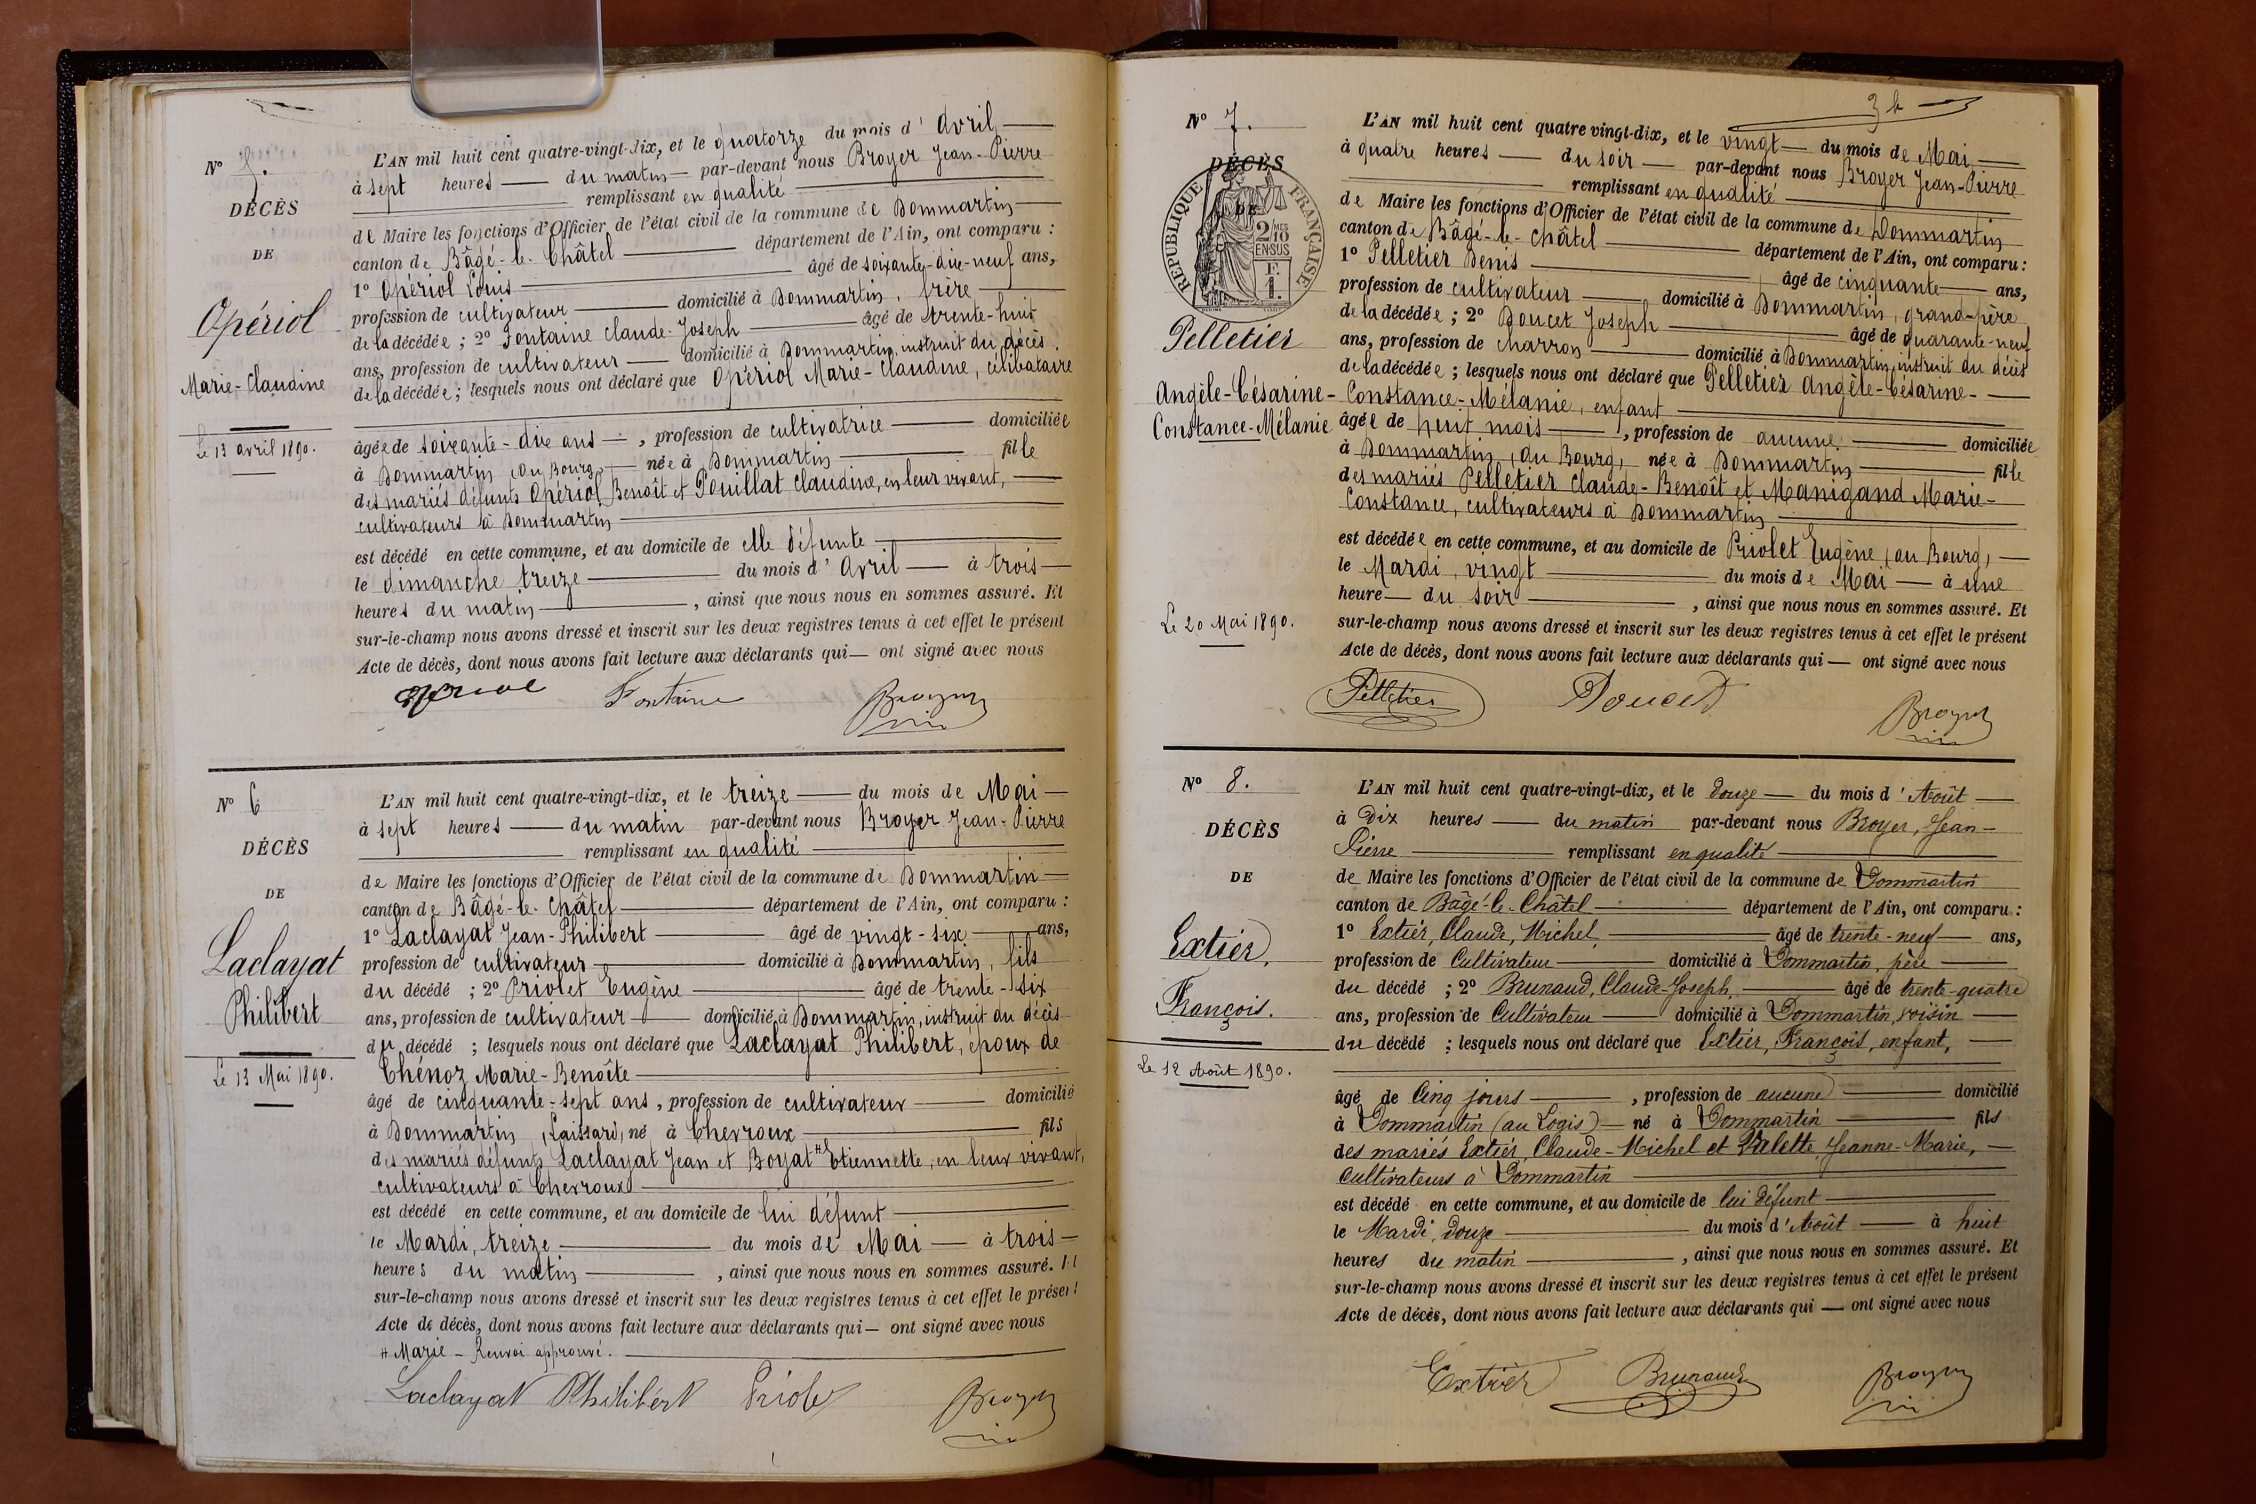 Nº 5.
DÉCÈS
DE
Opériol
Marie-Claudine
Le 13 avril 1890.
L'AN mil huit cent quatre-vingt-dix, et le quatorze du mois d'avril
à sept heures du matin par-devant nous Broyer Jean-Pierre
remplissant en qualité
de Maire les fonctions d'Officier de l'état civil de la commune de Dommartin
canton de Bâgé-le-Châtel département de l'Ain, ont comparu :
1º Opériol Louis âgé de soixante-dix-neuf ans,
profession de cultivateur domicilié à Dommartin, frère
de la décédée ; 2º Fontaine Claude-Joseph âgé de trente-huit
ans, profession de cultivateur domicilié à Dommartin, instruit du décès
de la décédée ; lesquels nous ont déclaré que Opériol Marie-Claudine, célibataire
âgée de soixante-dix ans, profession de cultivatrice domiciliée
à Dommartin, (au Bourg), née à Dommartin fille
des mariés défunts Opériol Benoît et Pouillat Claudine, en leur vivant,
cultivateurs à Dommartin
est décédé en cette commune, et au domicile de elle défunte
le dimanche treize du mois d'avril à trois
heures du matin, ainsi que nous nous en sommes assuré. Et
sur-le-champ nous avons dressé et inscrit sur les deux registres tenus à cet effet le présent
Acte de décès, dont nous avons fait lecture aux déclarants qui — ont signé avec nous
Opériol Fontaine Broyer
Nº 6
DÉCÈS
DE
Laclayat
Philibert
Le 13 Mai 1890.
L'AN mil huit cent quatre-vingt-dix, et le treize du mois de Mai
à sept heures du matin par-devant nous Broyer Jean-Pierre
remplissant en qualité
de Maire les fonctions d'Officier de l'état civil de la commune de Dommartin
canton de Bâgé-le-Châtel département de l'Ain, ont comparu :
1º Laclayat Jean-Philibert âgé de vingt-six ans,
profession de cultivateur domicilié à Dommartin, fils
du décédé ; 2º Priolet Eugène âgé de trente-six
ans, profession de cultivateur domicilié à Dommartin, instruit du décès
du décédé ; lesquels nous ont déclaré que Laclayat Philibert, époux de
Chenoz Marie-Benoîte
âgé de cinquante-sept ans, profession de cultivateur domicilié
à Dommartin, (Laissard), né à Chevroux fils
des mariés défunts Laclayat Jean et Boyat # Etiennette, en leur vivant,
cultivateurs à Chevroux
est décédé en cette commune, et au domicile de lui défunt
le Mardi, treize du mois de Mai à trois
heures du matin, ainsi que nous nous en sommes assuré. Et
sur-le-champ nous avons dressé et inscrit sur les deux registres tenus à cet effet le présent
Acte de décès, dont nous avons fait lecture aux déclarants qui — ont signé avec nous
# Marie — Renvoi approuvé.
Laclayat Philibert Priolet Broyer
3
Nº 7.
DÉCÈS
DE
RÉPUBLIQUE FRANÇAISE
2/10MES
EN SUS
F.
1.
Pelletier
Angèle-Césarine-
Constance-Mélanie
Le 20 Mai 1890.
L'AN mil huit cent quatre vingt-dix, et le vingt du mois de Mai
à quatre heures du soir par-devant nous Broyer Jean-Pierre
remplissant en qualité
de Maire les fonctions d'Officier de l'état civil de la commune de Dommartin
canton de Bâgé-le-Châtel département de l'Ain, ont comparu :
1º Pelletier Denis âgé de cinquante ans,
profession de cultivateur domicilié à Dommartin, grand-père
de la décédée ; 2º Doucet Joseph âgé de quarante-neuf
ans, profession de charron domicilié à Dommartin, instruit du décès
de la décédée ; lesquels nous ont déclaré que Pelletier Angèle-Césarine-
Constance-Mélanie, enfant
âgée de huit mois, profession de aucune domiciliée
à Dommartin, (au Bourg), née à Dommartin fille
des mariés Pelletier Claude-Benoît et Manigand Marie-
Constance, cultivateurs à Dommartin
est décédée en cette commune, et au domicile de Priolet Eugène, (au Bourg),
le Mardi, vingt du mois de Mai à une
heure du soir, ainsi que nous nous en sommes assuré. Et
sur-le-champ nous avons dressé et inscrit sur les deux registres tenus à cet effet le présent
Acte de décès, dont nous avons fait lecture aux déclarants qui — ont signé avec nous
Pelletier Doucet Broyer
Nº 8.
DÉCÈS
DE
Extier,
François.
Le 12 Août 1890.
L'AN mil huit cent quatre-vingt-dix, et le douze du mois d'Août
à Dix heures du matin par-devant nous Broyer, Jean-
Pierre remplissant en qualité
de Maire les fonctions d'Officier de l'état civil de la commune de Dommartin
canton de Bâgé-le-Châtel département de l'Ain, ont comparu :
1º Extier, Claude, Michel, âgé de trente-neuf ans,
profession de Cultivateur domicilié à Dommartin, père
du décédé ; 2º Brunaud, Claude-Joseph, âgé de trente-quatre
ans, profession de Cultivateur domicilié à Dommartin, voisin
du décédé ; lesquels nous ont déclaré que Extier, François, enfant,
âgé de Cinq jours, profession de aucune domicilié
à Dommartin (au Logis) né à Dommartin fils
des mariés Extier, Claude-Michel et Valette, Jeanne-Marie,
Cultivateurs à Dommartin
est décédé en cette commune, et au domicile de lui défunt
le Mardi, douze du mois d'Août à huit
heures du matin, ainsi que nous nous en sommes assuré. Et
sur-le-champ nous avons dressé et inscrit sur les deux registres tenus à cet effet le présent
Acte de décès, dont nous avons fait lecture aux déclarants qui — ont signé avec nous
Extier Brunaud Broyer